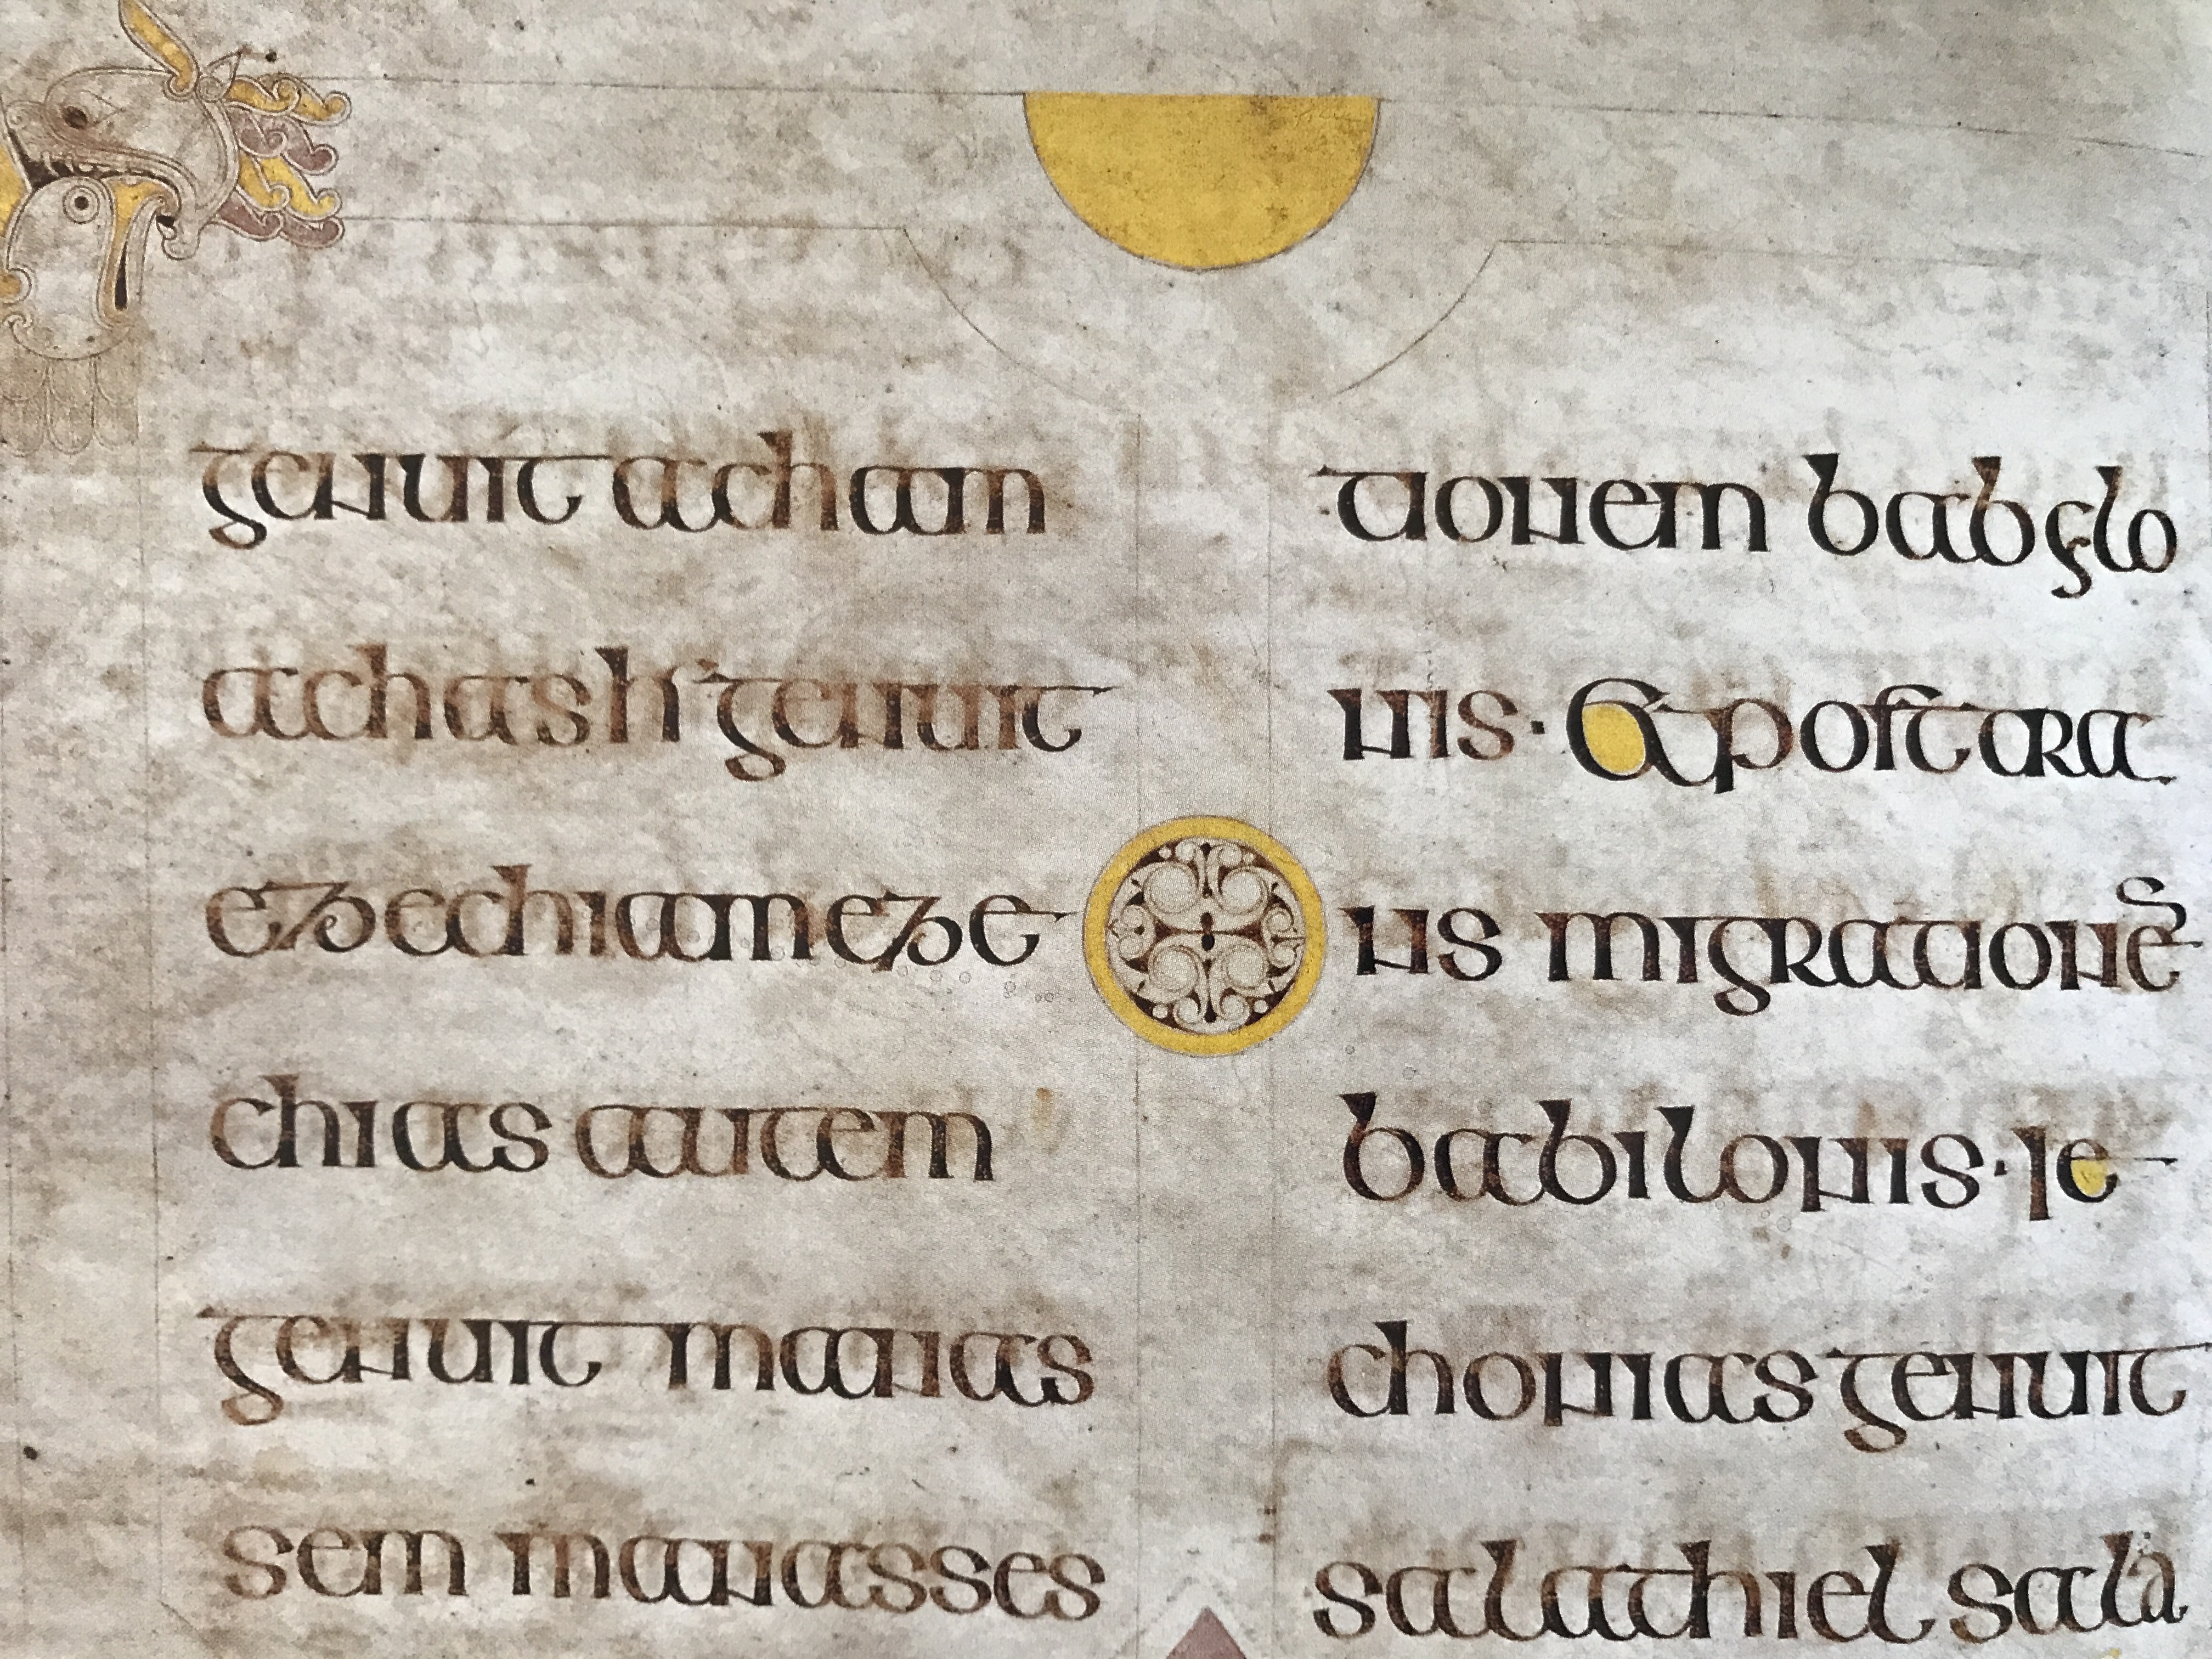 genuit acham
achas hꞌ genuit
ezechiam eze
chias autem
genuit manas
sem manasses
tionem babylo
nis · & post tra
ns migrationē
babilonis · Ie
chonias genuit
salathiel sala